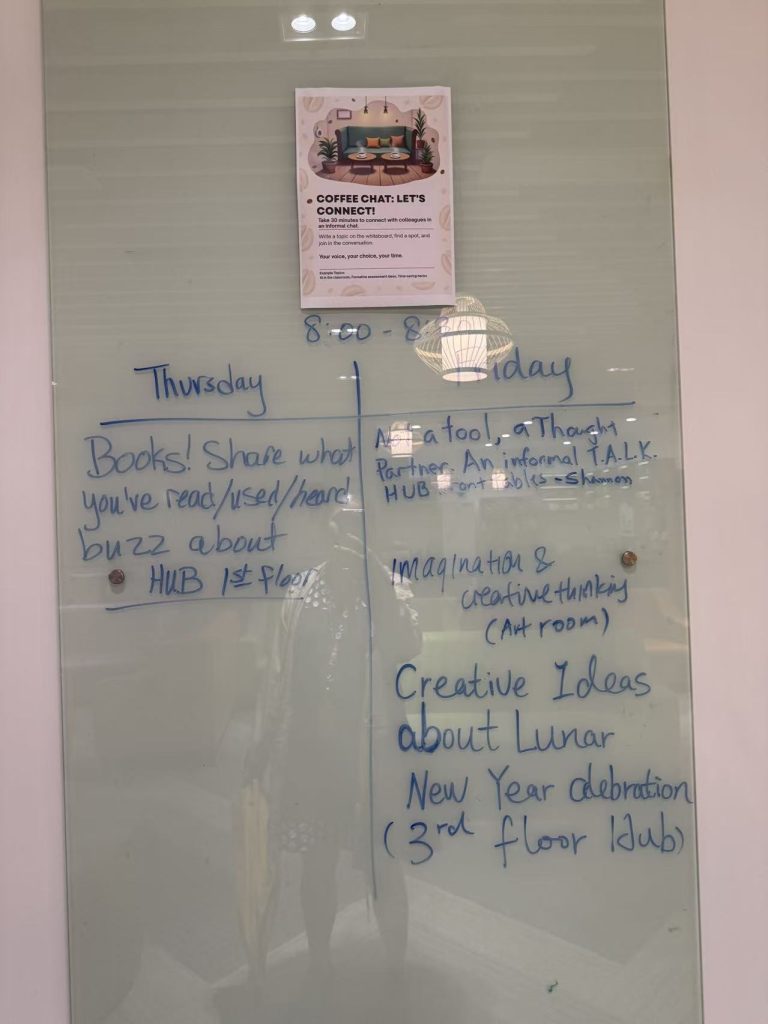 COFFEE CHAT: LET'S
CONNECT!
Take 30 minutes to connect with colleagues in
an informal chat.
Write a topic on the whiteboard, find a spot, and
join in the conversation.
Your voice, your choice, your time.
Example Topics
AI in the classroom, Formative assessment ideas, Time-saving hacks
8:00 - 8:30
Thursday
Friday
Books! Share what
you've read/used/heard
buzz about
HUB 1st floor
Not a tool, a Thought
Partner. An informal T.A.L.K.
HUB front tables - Shannon
Imagination &
creative thinking
(Art room)
Creative Ideas
about Lunar
New Year celebration
(3rd floor Hub)